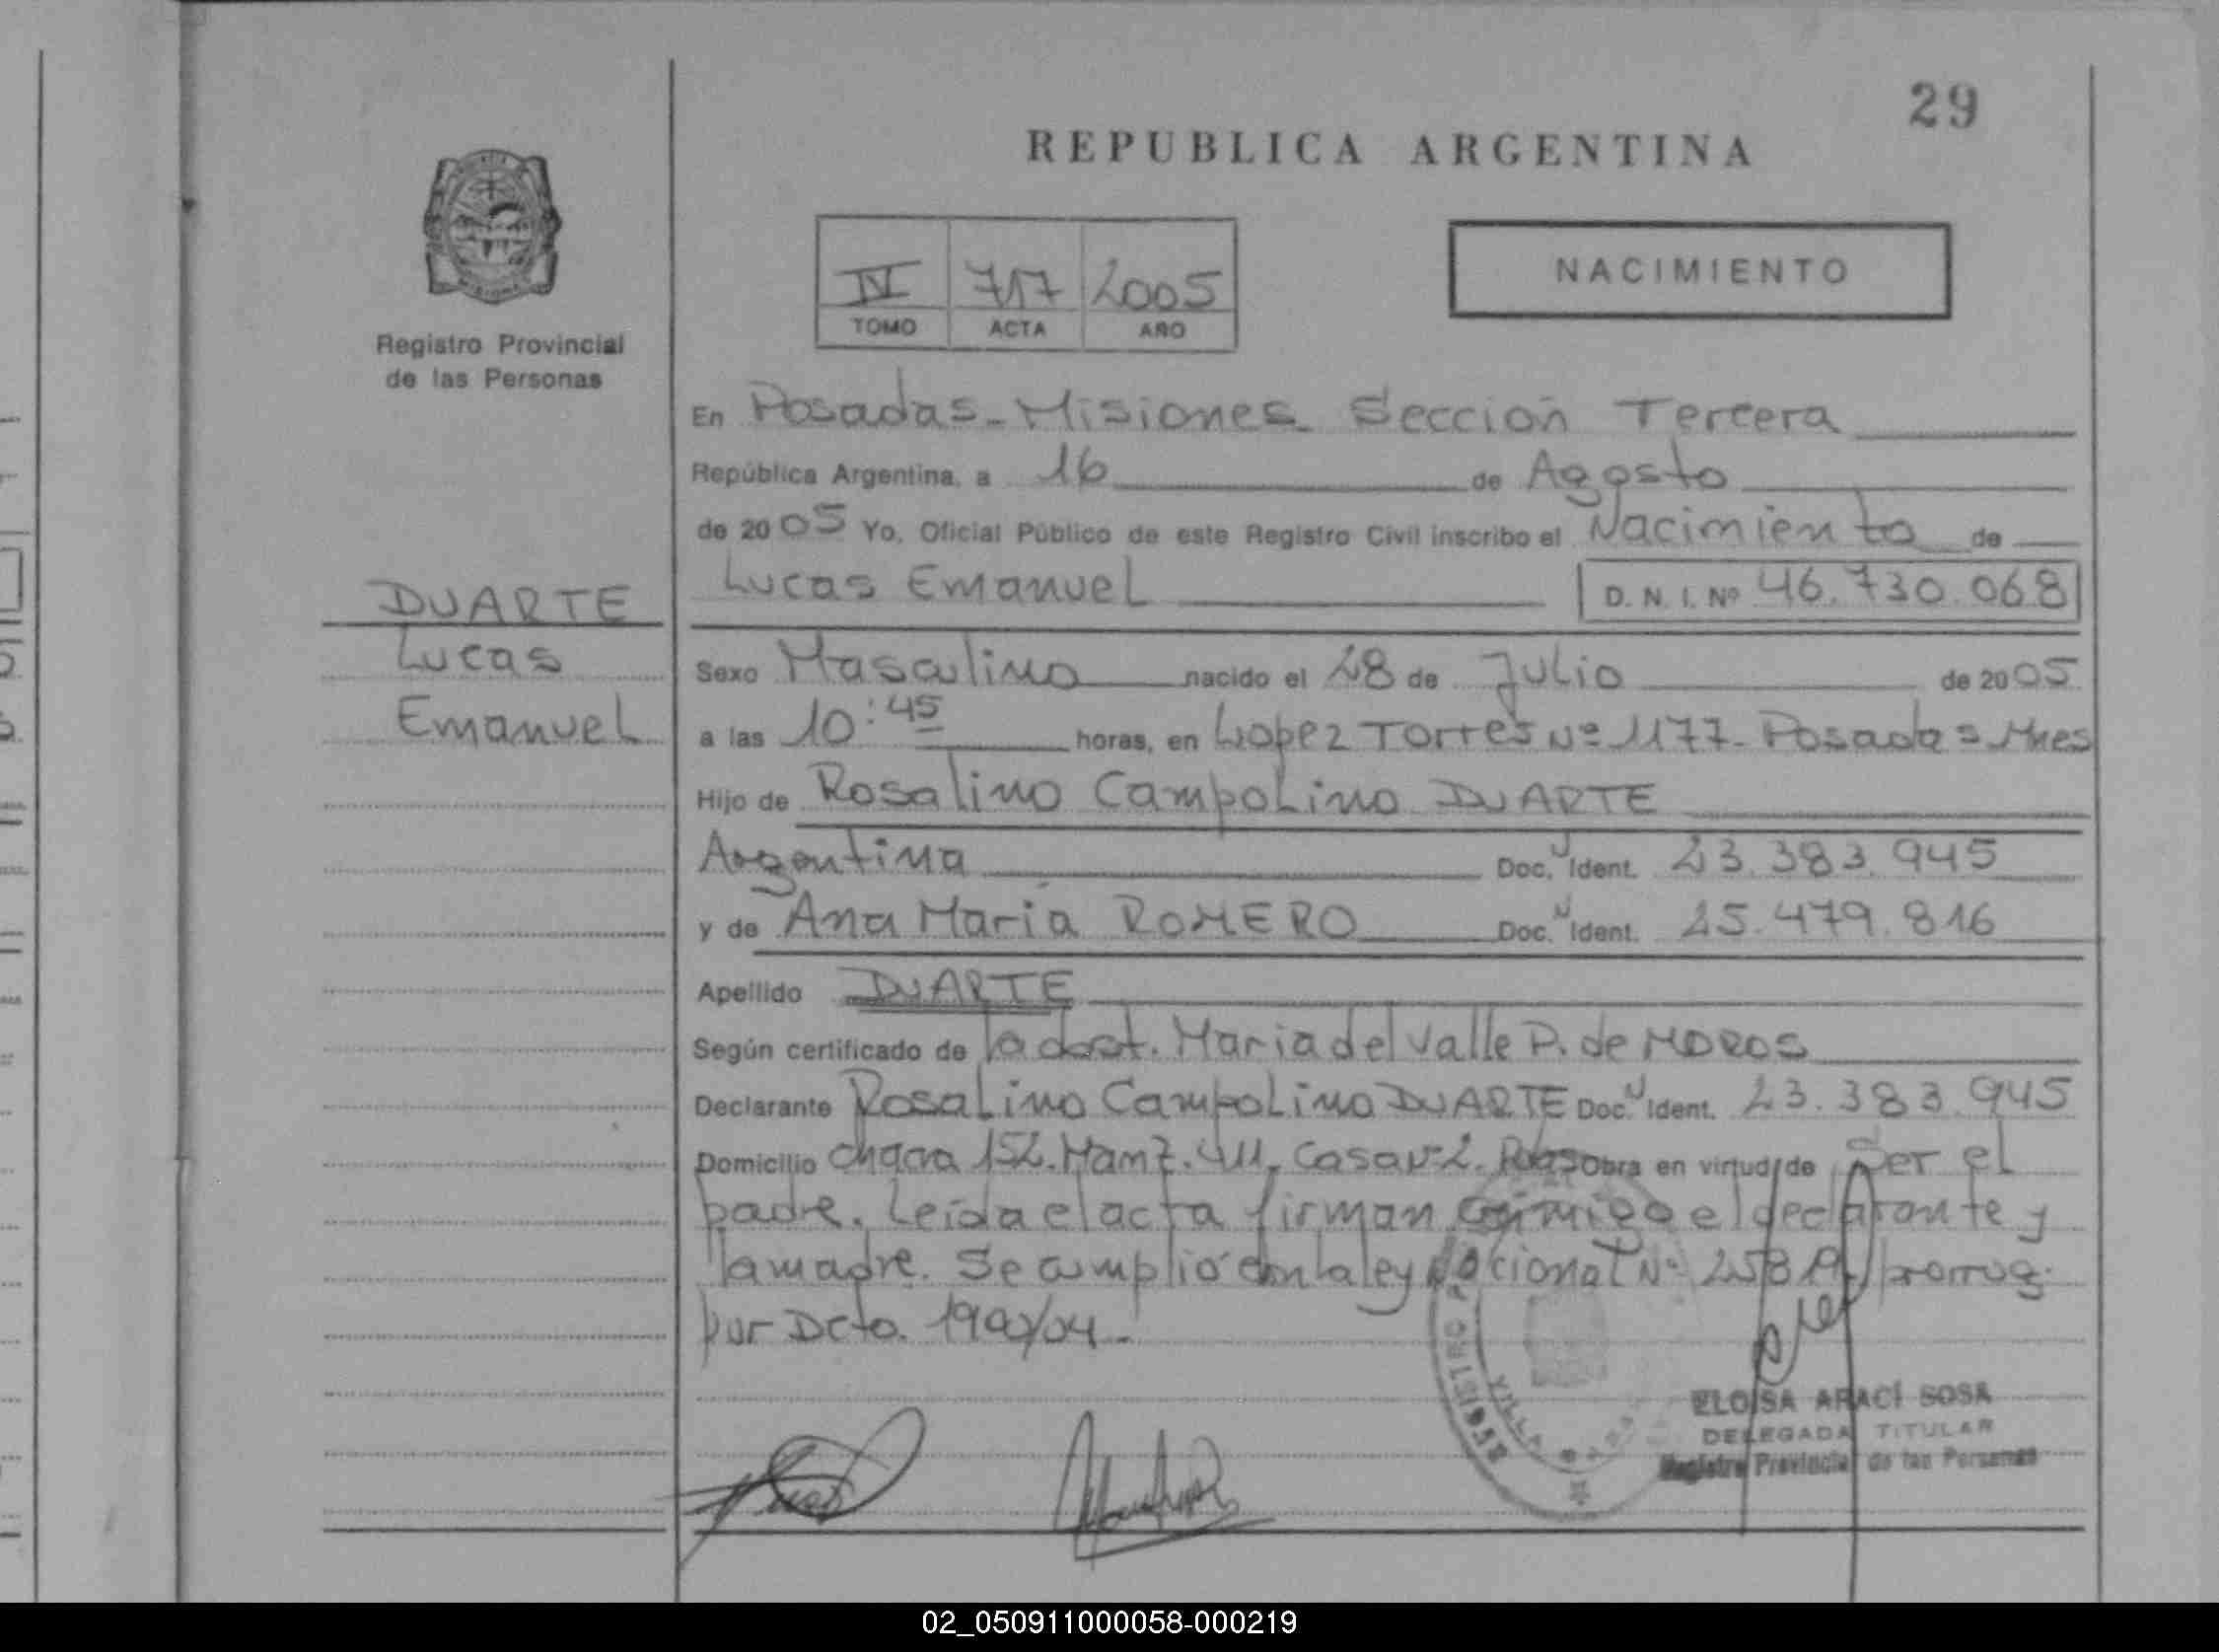 29
REPUBLICA ARGENTINA
NACIMIENTO
IV 717 2005
TOMO ACTA AÑO
Registro Provincial
de las Personas
En Posadas - Misiones. Sección Tercera
República Argentina, a 16 de Agosto
de 2005 Yo, Oficial Público de este Registro Civil inscribo el Nacimiento de
Lucas Emanuel D. N. I. Nº 46.730.068
DUARTE
Lucas
Emanuel
Sexo Masculino nacido el 28 de Julio de 2005
a las 10:45 horas, en Lopez Torres Nº 1177 - Posadas - Mnes
Hijo de Rosalino Campolino DUARTE
Argentina Doc. Ident. 23.383.945
y de Ana María ROMERO Doc. Ident. 25.479.816
Apellido DUARTE
Según certificado de la obst. Maria del Valle P. de MOROS
Declarante Rosalino Campolino DUARTE Doc. Ident. 23.383.945
Domicilio chacra 152. Manz. 411. Casa Nº 2. Obra en virtud de Ser el
padre. Leída el acta firman conmigo el declarante y
la madre. Se cumplió con la ley nacional Nº prorrog.
por Dcto.
REGISTRO
VILLA
ELOISA ARACÍ SOSA
DELEGADA TITULAR
Registro Provincial de las Personas
02_050911000058-000219